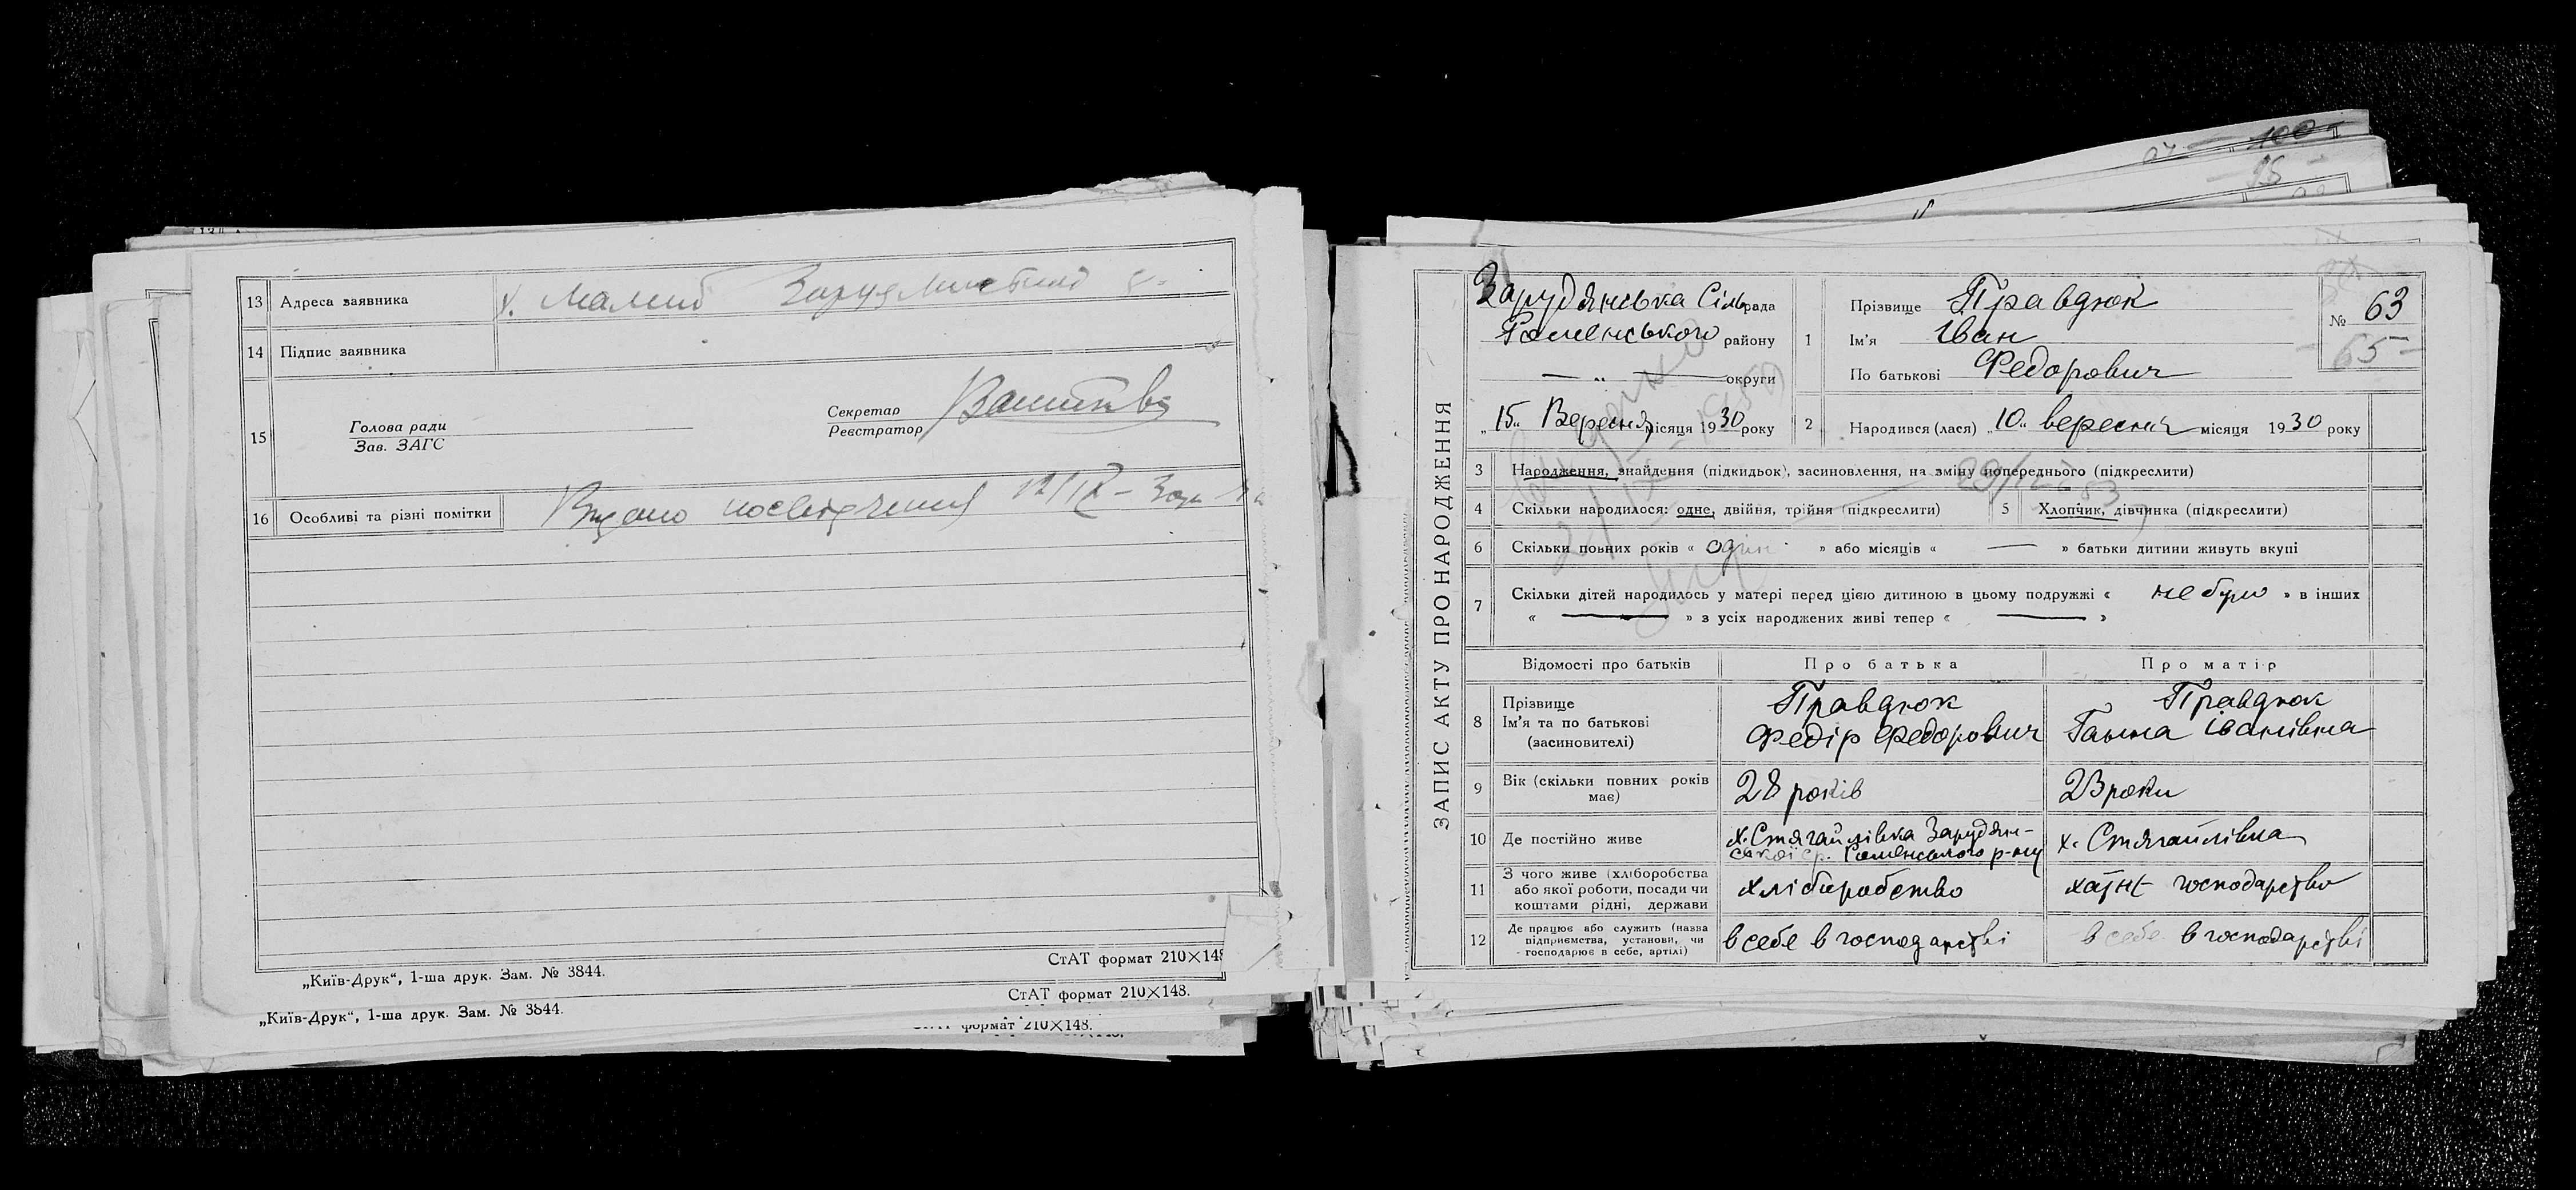 13 Адреса заявника х.
14 Підпис заявника
15 Голова ради
Зав. ЗАГС
Секретар
Реєстратор
16 Особливі та різні помітки Видано посвідчення 12/IX–30р.
„Київ-Друк“, 1-ша друк. Зам. № 3844.
СтАТ формат 210×148
СтАТ формат 210×148.
„Київ-Друк“, 1-ша друк. Зам. № 3844.
формат 210×148.
100
95
ЗАПИС АКТУ ПРО НАРОДЖЕННЯ
Зарудянська Сільрада
Роменського району
— „ — округи
„15“ Вересня місяця 1930 року
1 Прізвище Правдюк
Ім'я Іван
По батькові Федорович
№ 63
65
2 Народився (лася) „10“ вересня місяця 1930 року
3 Народження, знайдення (підкидьок), засиновлення, на зміну попереднього (підкреслити)
4 Скільки народилося: одне, двійня, трійня (підкреслити) 5 Хлопчик, дівчинка (підкреслити)
6 Скільки повних років « один » або місяців « — » батьки дитини живуть вкупі
7 Скільки дітей народилось у матері перед цією дитиною в цьому подружжі « не було » в інших
« — » з усіх народжених живі тепер « — »
Відомості про батьків Про батька Про матір
8 Прізвище
Ім'я та по батькові
(засиновителі)
Правдюк
Федір Федорович
Правдюк
Ганна Іванівна
9 Вік (скільки повних років
має)
28 років
23 роки
10 Де постійно живе
х. Стягайлівка Зарудян-
ської с.р. Роменського р-ну
х. Стягайлівка
11 З чого живе (хліборобства
або якої роботи, посади чи
коштами рідні, держави
хліборобство
хатнє господарство
12 Де працює або служить (назва
підприємства, установи, чи
господарює в себе, артілі)
в себе в господарстві
в себе в господарстві